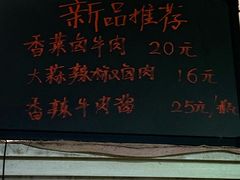 新品推荐
香菜卤牛肉 20元
大蒜辣椒卤肉 16元
香辣牛肉酱 25元/瓶